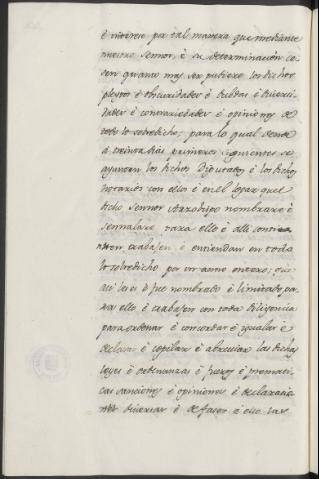 é vivireis por tal manera que mediante
nuestro Sennor, é su determinación ce-
sen quanto mas ser pudiere los dichos
pleytos é obscuridades é dubdas é diversi-
dades é contrariedades é opiniones de
todo lo sobredicho; para lo qual desde
á treinta dias primeros siguientes se
ayunten los dichos Diputados é los dichos
notarios con ello é en el logar quel
dicho Sennor Arzobispo nombrare é
sennalare para ello é alli contin-
uen trabajen, é entiendan en todo
lo sobredicho por un anno entero, que
asi les es é fue nombrado é limitado pa-
ra ello é trabajen con toda diligencia
para ordenar é concordar é igualar é
declarar é copilar é abreviar las dichas
leyes é ordenanzas é fueros é prematti-
cas sanciones é opiniones é declaracio-
nes diversas é desfacer é ello las